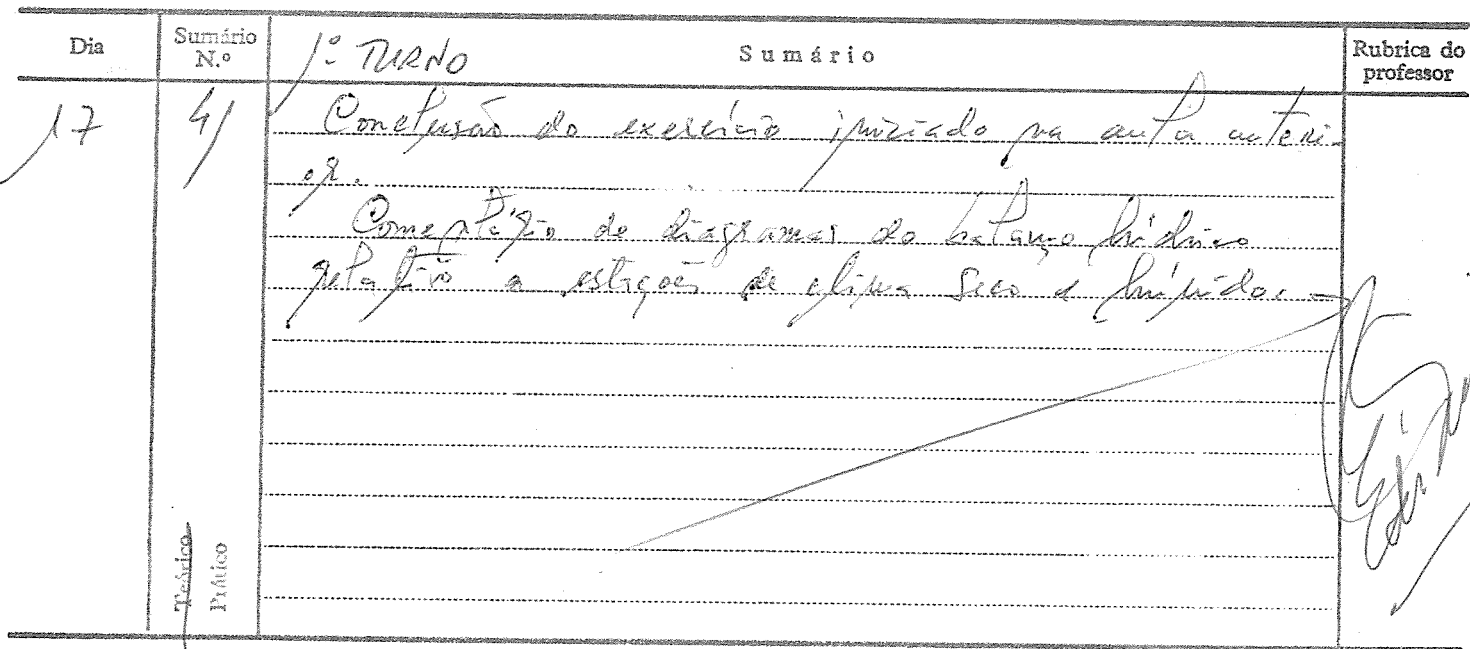 Dia
Sumário N.º
1.º TURNO
Sumário
Rubrica do professor
17
4/
Conclusão do exercício iniciado na aula anteri-
or.
Comentação de diagramas do balanço hídrico
relativo a estações de clima seco e húmido. -
Teórico
Prático